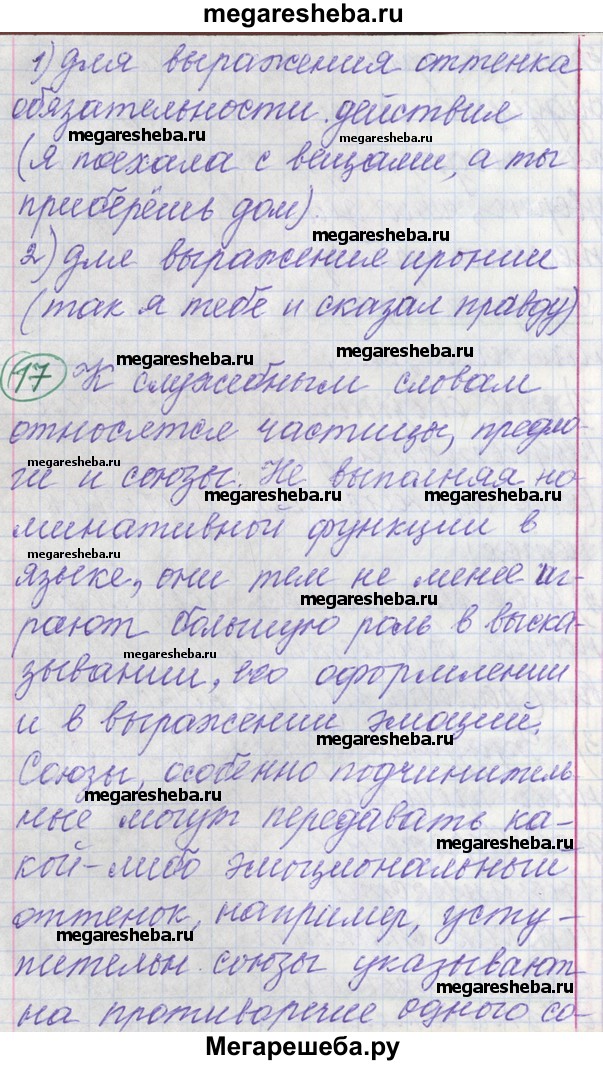 megaresheba.ru
1) для выражения оттенка
обязательности действия
megaresheba.ru megaresheba.ru
(я поехала с вещами, а ты
приберёшь дом).
megaresheba.ru
2) для выражение иронии
(так я тебе и сказал правду)
megaresheba.ru megaresheba.ru
17 К служебным словам
относятся частицы, предло-
megaresheba.ru
ги и союзы. Не выполняя но-
megaresheba.ru megaresheba.ru
минативной функции в
megaresheba.ru
языке, они тем не менее иг-
megaresheba.ru
рают большую роль в выска-
megaresheba.ru
зывании, его оформлении
и в выражении эмоций.
megaresheba.ru
Союзы, особенно подчинитель-
megaresheba.ru
ные могут передавать ка-
кой-либо эмоциональный
megaresheba.ru
оттенок, например, усту-
megaresheba.ru
пительн. союзы указывают
megaresheba.ru
на противоречие одного со-
Мегарешеба.ру